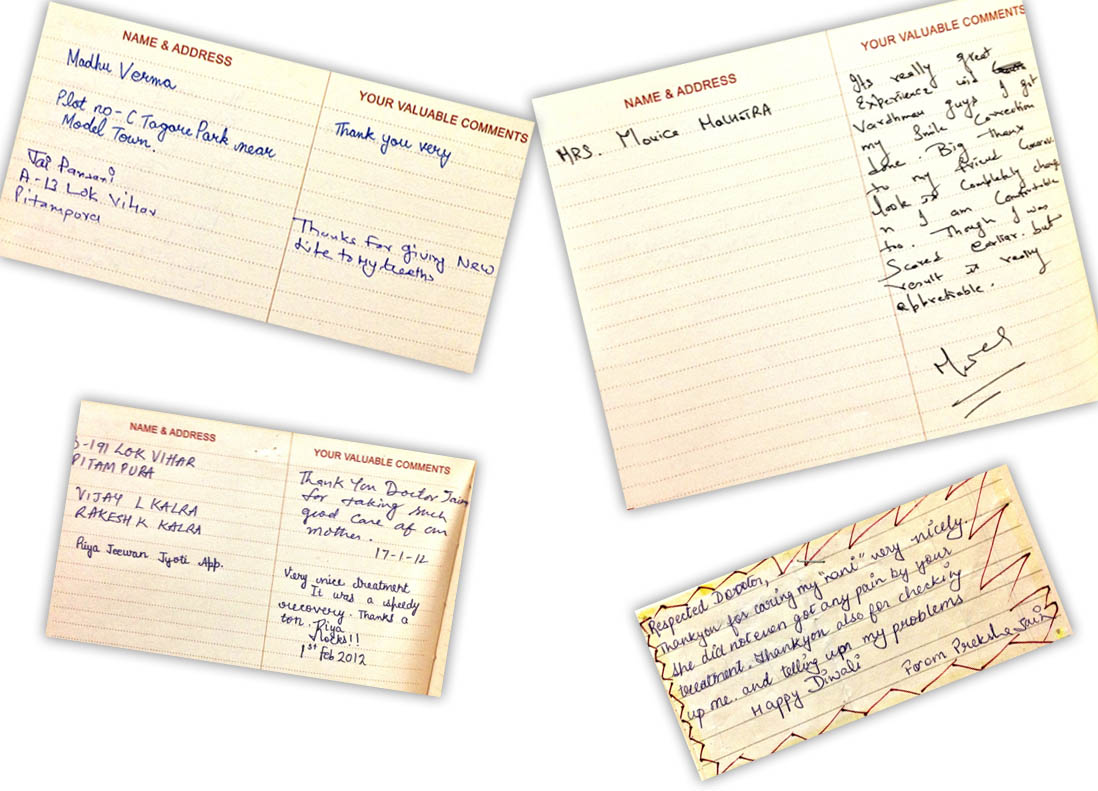 NAME & ADDRESS
Madhu Verma
Plot no-C Tagore Park near
Model Town.
Jai
A-13 Lok Vihar
Pitampura
YOUR VALUABLE COMMENTS
Thank you very
Thanks For giving New
Life to My teeths
NAME & ADDRESS
MRS. Monica MALHOTRA
YOUR VALUABLE COMMENTS
Its really great
Experience wid
Vardhman guys I got
my Smile Correction
done. Big Thanx
to my friend
look is Completely change
n I am Comfortable
too. Though I was
Scared earlier. but
result is really
appreciable.
NAME & ADDRESS
-191 LOK VIHAR
PITAM PURA
VIJAY L KALRA
RAKESH K KALRA
Riya Jeewan Jyoti App.
YOUR VALUABLE COMMENTS
Thank You Doctor Jain
for taking such
good care of our
mother.
17-1-12
Very nice treatment
It was a speedy
recovery. Thanks a
ton. Riya
Rocks!!
1st Feb 2012
Respected Docotor,
Thankyou for caring my "nani" very nicely.
She did not even got any pain by your
treatment. Thankyou also for checking
up me. and telling upn my problems
Happy Diwali
From Preksha Jain